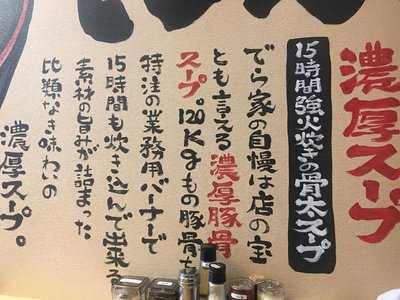 濃厚スープ
15時間強火炊きの骨太スープ
でら家の自慢は店の宝
とも言える濃厚豚骨
スープ。120Kgもの豚骨を
特注の業務用バーナーで
15時間も炊き込んで出来る
素材の旨みが詰まった
比類なき味わいの
濃厚スープ。